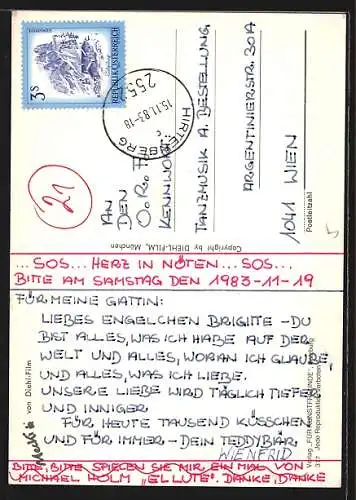 3S
REPUBLIK ÖSTERREICH
HIRTENBERG
15.11.83-18
c
21
AN
DEN
O.R.F.
KENNWORT:
TANZMUSIK A. BESTELLUNG,
ARGENTINIERSTR. 30A
1041 WIEN
Postleitzahl
5
Copyright by DIEHL-FILM, München
...SOS... HERZ IN NÖTEN ...SOS...
BITTE AM SAMSTAG DEN 1983-11-19
FÜR MEINE GATTIN:
LIEBES ENGELCHEN BRIGITTE - DU
BIST ALLES, WAS ICH HABE AUF DER
WELT UND ALLES, WORAN ICH GLAUBE,
UND ALLES, WAS ICH LIEBE.
UNSERE LIEBE WIRD TÄGLICH TIEFER
UND INNIGER.
FÜR HEUTE TAUSEND KÜSSCHEN
UND FÜR IMMER - DEIN TEDDYBÄR
WIENFRID
BITTE, BITTE SPIELEN SIE MIR EINMAL VON
MICHAEL HOLM "EL LUTE". DANKE, DANKE
von Diehl-Film
Verlag „FÜR KUNSTFREUNDE",
Jede Reproduktion verboten